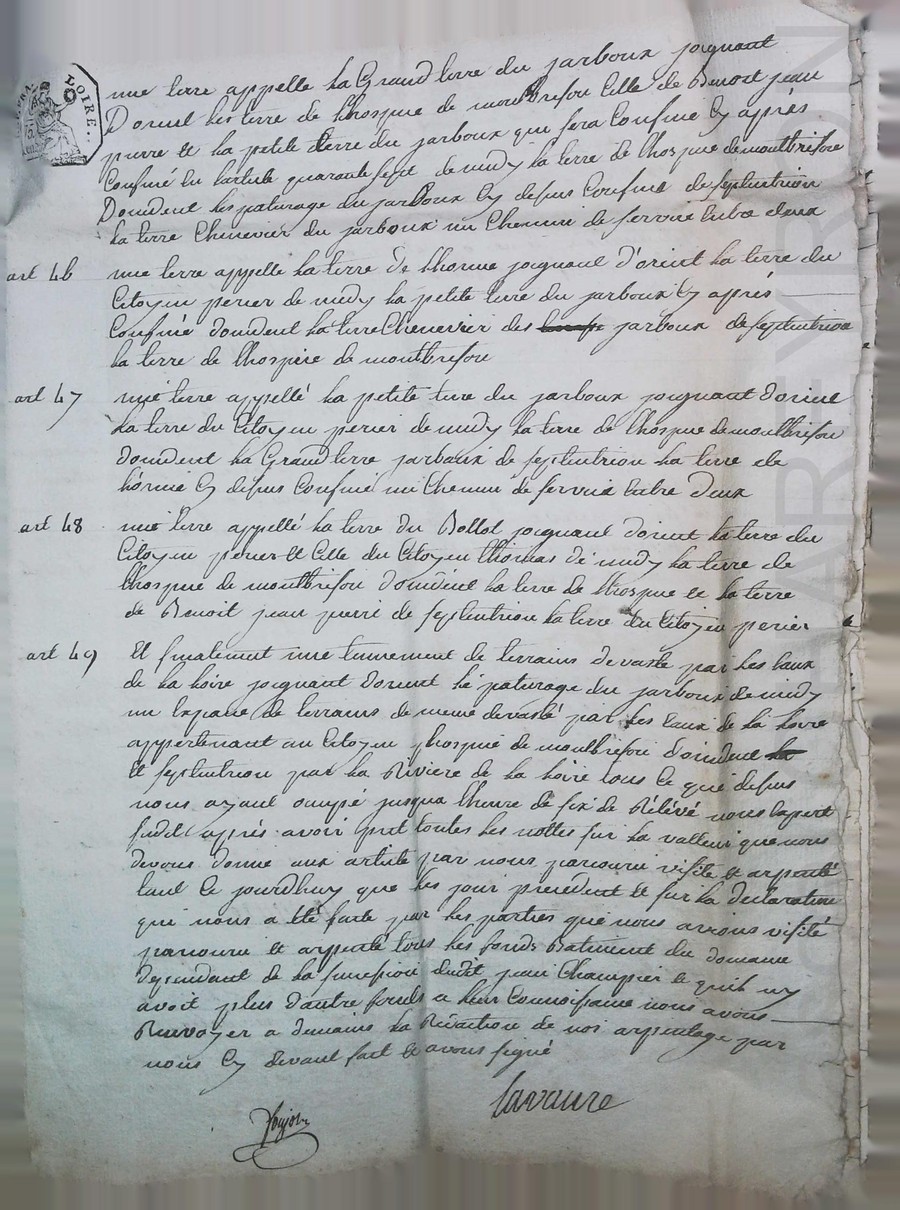 LOIRE.
une terre appelle la Grand terre du jarboux joignant
Dorient les terre de lhospice de montbrison Celle de Benoit jean
pierre et la petite terre du jarboux qui sera Confiné Cy après
Confiné en larticle quarante sept de midy la terre de lhospice de montbrison
Doccident les paturage du jarboux Cy depus Confiné de septentrion
la terre Chenevier du jarboux un Chemin de servoie Entre deux
art 46 une terre appelle la terre de lhorme joignant d'orient la terre du
Citoyen perier de midy la petite terre du jarboux Cy après
Confiné doccident la terre Chenevier des jarboux de septentrion
la terre de lhospice de montbrison
art 47 une terre appellé la petite terre du jarboux joignant dorient
la terre du Citoyen perier de midy la terre de lhospice de montbrison
doccident la Grand terre jarboux de septentrion la terre de
lorme Cy depus Confiné un Chemin de servoie Entre deux
art 48 une terre appellé la terre du Bollot joignant dorient la terre du
Citoyen perier et Celle du Citoyen thomas de midy la terre de
lhospice de montbrison doccident la terre de lhospice et la terre
de Benoit jean pierre de septentrion la terre du Citoyen perier
art 49 Et finalement une tennement de terrains devasté par les Eaux
de la loire joignant dorient le paturage du jarboux de midy
un Espace de terrains de meme devasté par les Eaux de la loire
appertenant au Citoyen lhospice de montbrison doccident
et septentrion par la Riviere de la loire tous ce que depus
nous ayant occupé jusqua lheure de six de Rélévé nous Expert
sudit après avoir prit toutes les nottes sur la valleur que nous
devons donné aux article par nous parcouru visité et arpenté
tant Ce jourdhuy que les jour precedent et sur la declaration
qui nous a été faite par les parties que nous avions visité
parcouru et arpenté tous les fonds Batiment du domaine
dependant de la succession dudit jean Champier et quil ny
avoit plus dautre fonds a leur Connoissance nous avons
Renvoyer a demains la Rédaction de nos arpentage par
nous Cy devant fait et avons signé
lavaure